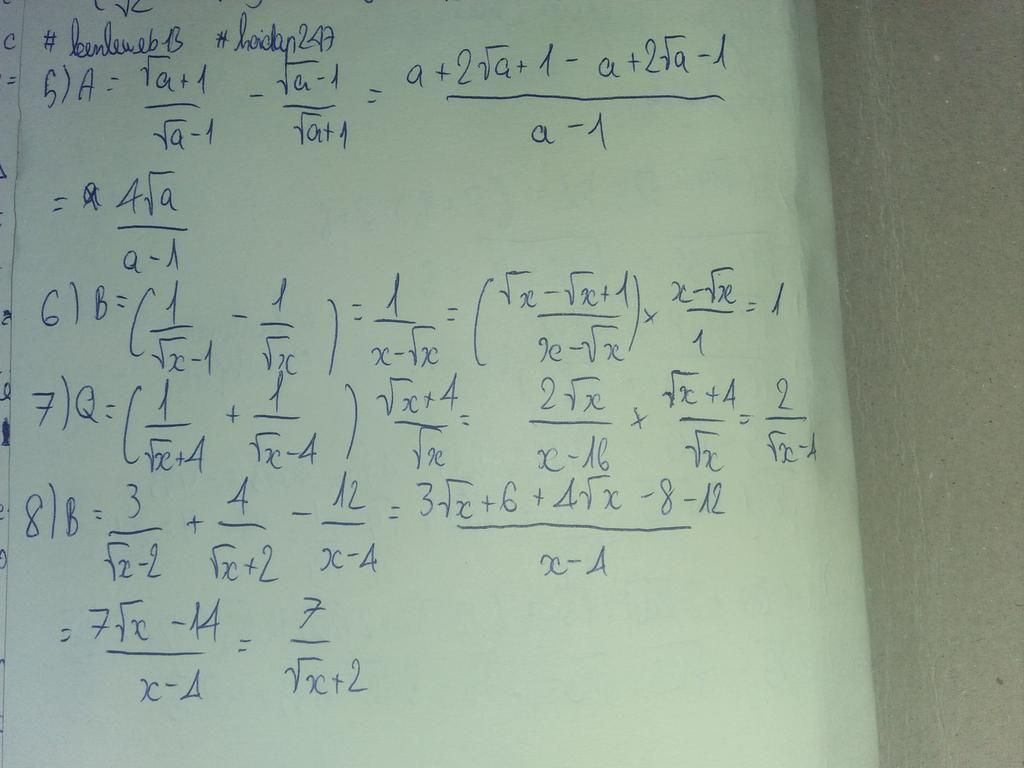 # kenlmeb13 #hoidap247
5) A = (√a+1)/(√a-1) - (√a-1)/(√a+1) = (a+2√a+1 - a+2√a-1)/(a-1)
= 4√a/(a-1)
6) B = (1/(√x-1) - 1/√x) = 1/(x-√x) = ((√x-√x+1)/(x-√x)) × (x-√x)/1 = 1
7) Q = (1/(√x+4) + 1/(√x-4)) (√x+4)/√x = 2√x/(x-16) × (√x+4)/√x = 2/(√x-4)
8) B = 3/(√x-2) + 4/(√x+2) - 12/(x-4) = (3√x+6+4√x-8-12)/(x-4)
= (7√x-14)/(x-4) = 7/(√x+2)